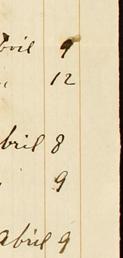 bril 9
" 12
bril 8
" 9
abril 9